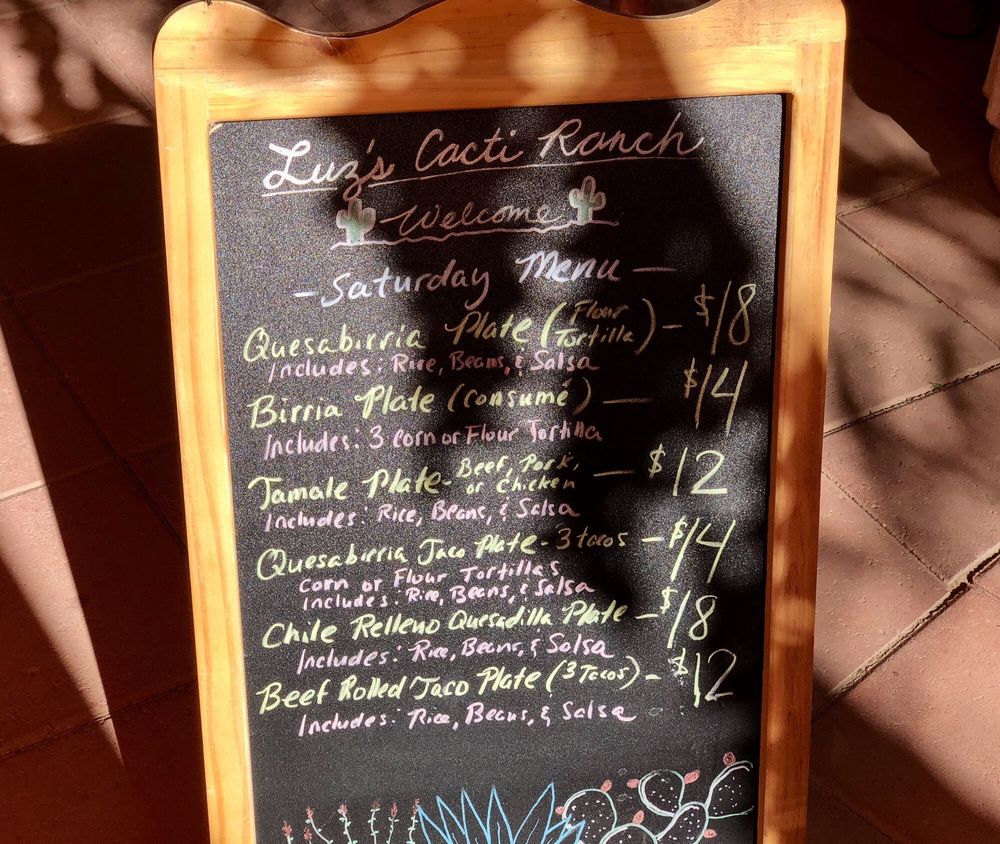 Luz's Cacti Ranch
Welcome
- Saturday Menu -
Quesabirria Plate (Flour Tortilla) - $18
Includes: Rice, Beans, & Salsa
Birria Plate (consumé) - $14
Includes: 3 corn or Flour Tortilla
Tamale Plate - Beef, Pork, or Chicken - $12
Includes: Rice, Beans, & Salsa
Quesabirria Taco Plate - 3 tacos - $14
corn or Flour Tortillas
Includes: Rice, Beans, & Salsa
Chile Relleno Quesadilla Plate - $18
Includes: Rice, Beans, & Salsa
Beef Rolled Taco Plate (3 Tacos) - $12
Includes: Rice, Beans, & Salsa